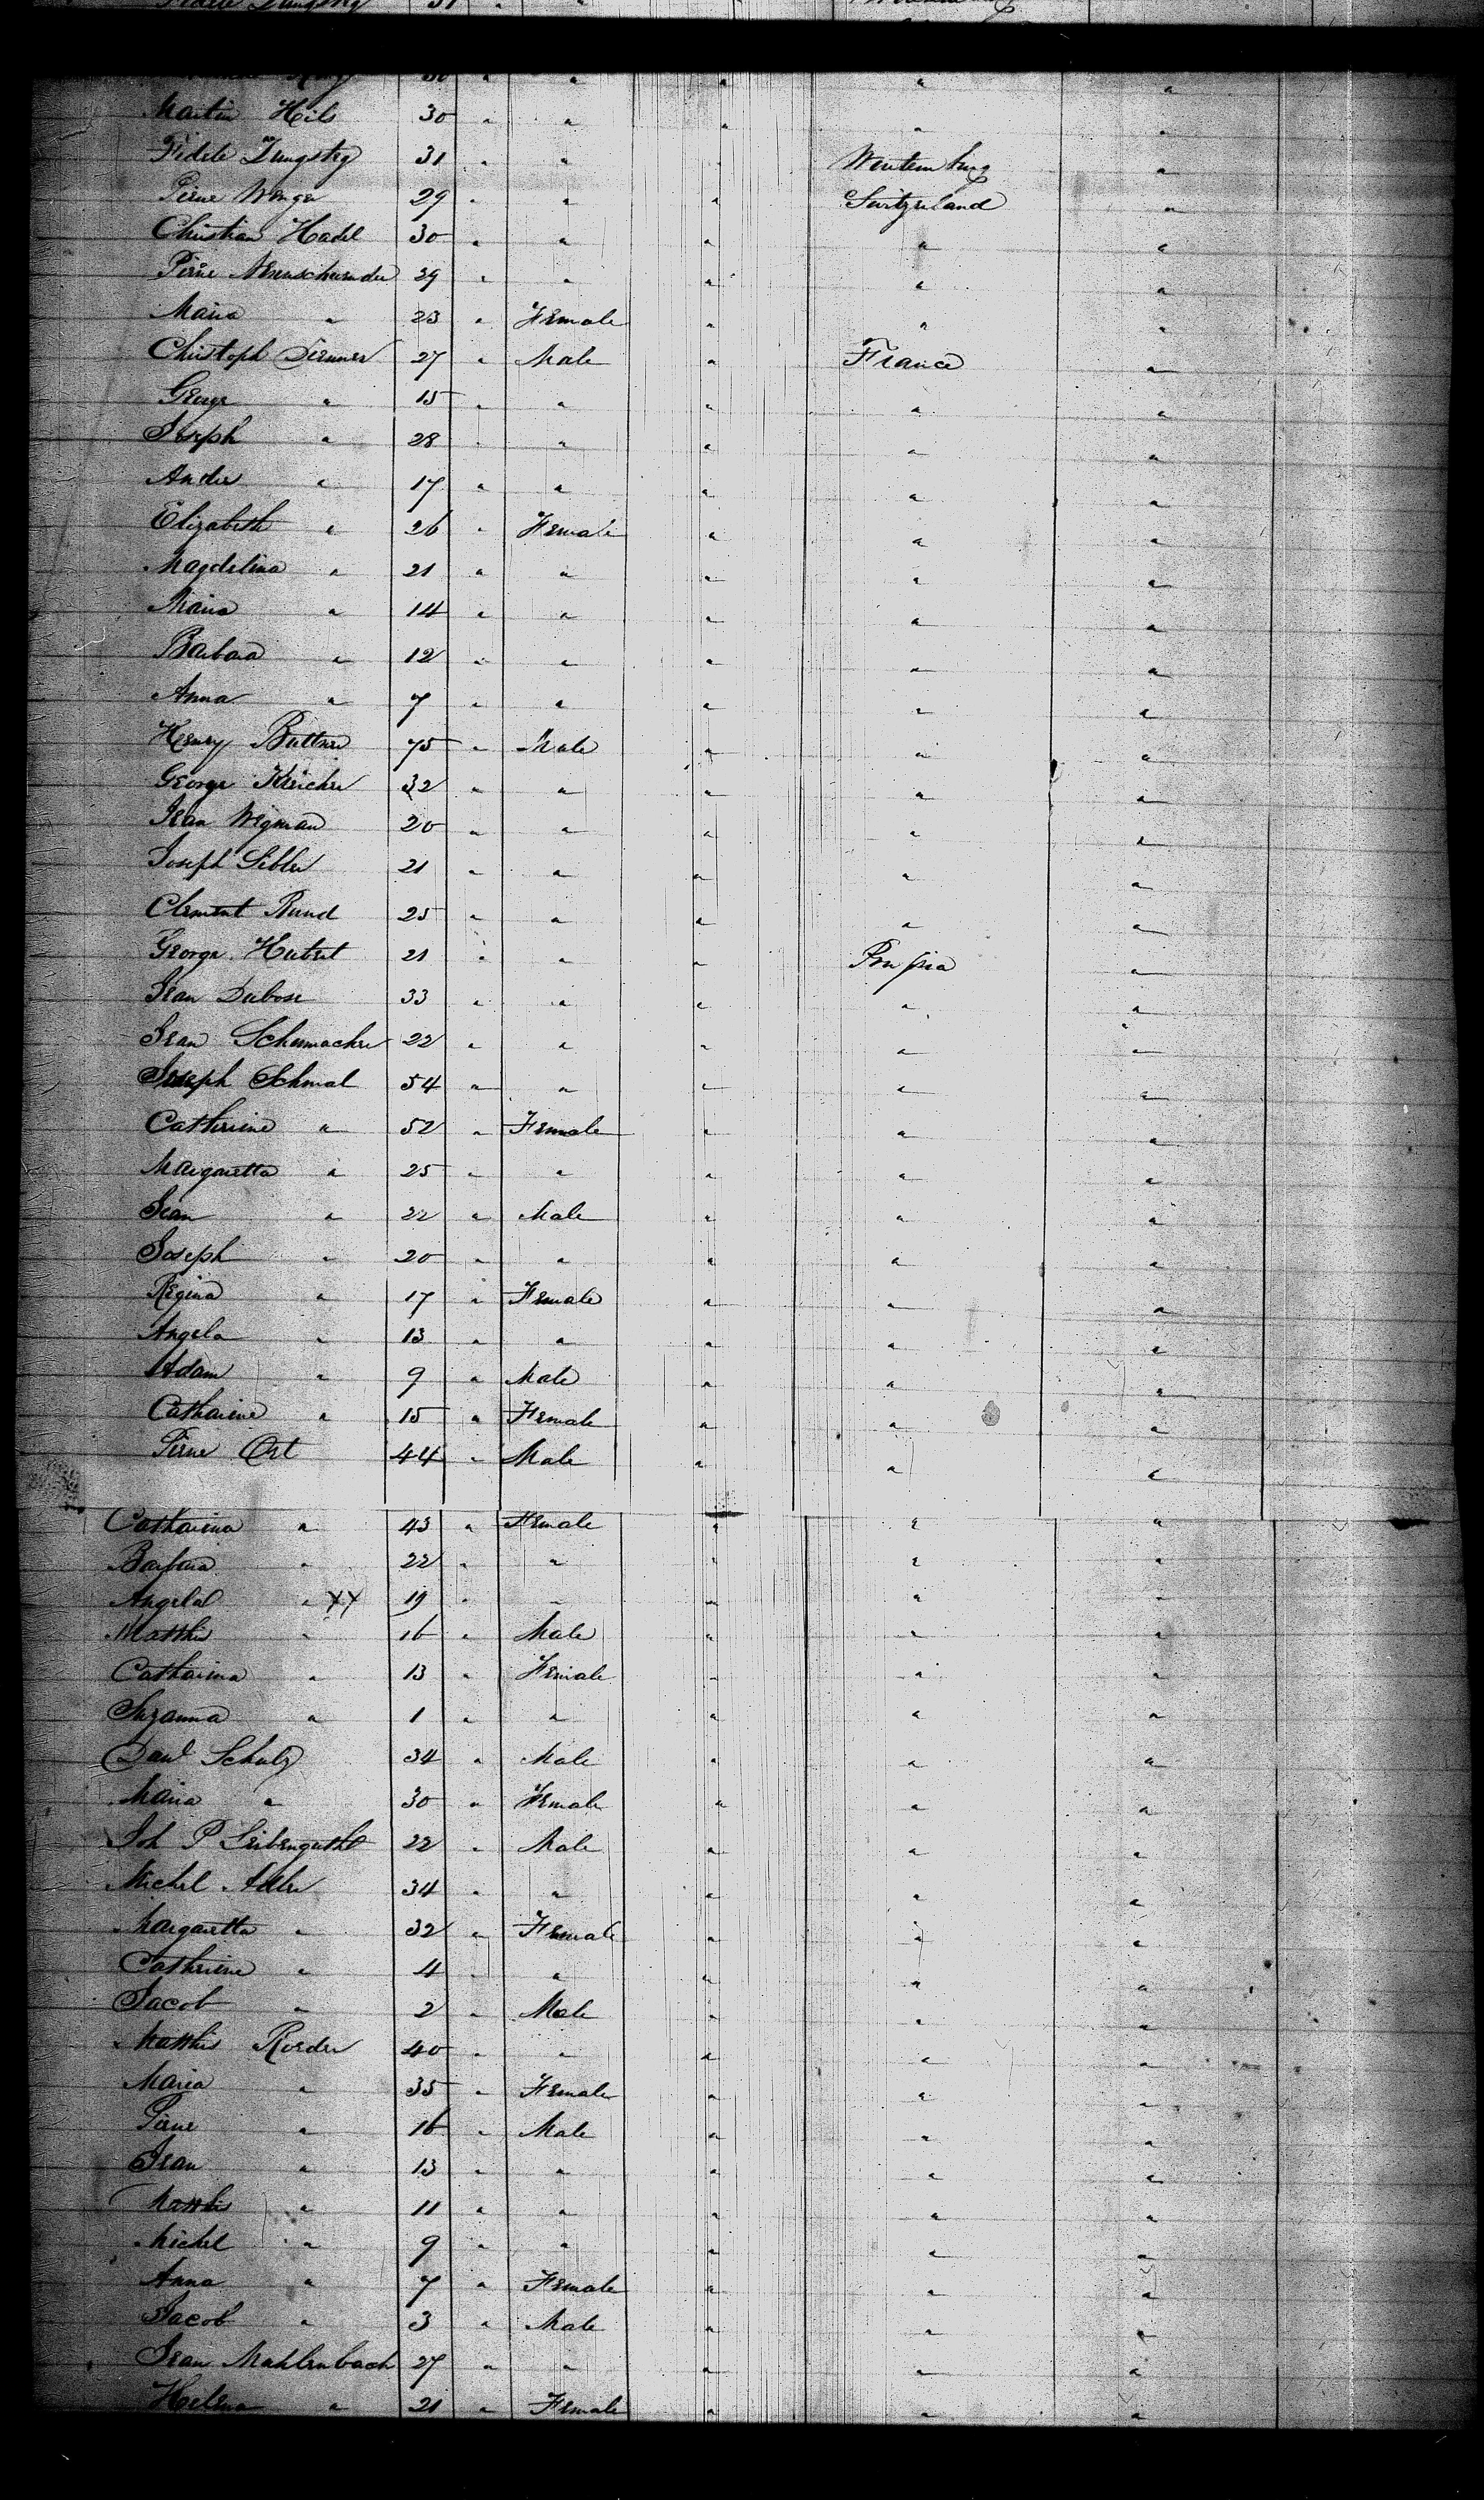 30 " " " " "
Martin Hils 30 " " " " "
Fidele 31 " " " Wurtemburg "
Pierre Wenger 29 " " " Switzerland "
Christian Hadel 30 " " " " "
Pierre 29 " " " " "
Maria " 23 " Female " " "
Christoph 27 " Male " France "
George " 15 " " " " "
Joseph " 28 " " " " "
Andre " 17 " " " " "
Elizabeth " 26 " Female " " "
Magdelina " 21 " " " " "
Maria " 14 " " " " "
Barbara " 12 " " " " "
Anna " 7 " " " " "
Henry Buttner 75 " Male " " "
George Kreicher 32 " " " " "
Jean Wegman 20 " " " " "
Joseph Sibler 21 " " " " "
Clement Rund 25 " " " " "
George Hubert 21 " " " Prussia "
Jean Dubose 33 " " " " "
Jean Schumacher 22 " " " " "
Joseph Schmal 54 " " " " "
Catherine " 52 " Female " " "
Margaretta " 25 " " " " "
Jean " 22 " Male " " "
Joseph " 20 " " " " "
Regina " 17 " Female " " "
Angela " 13 " " " " "
Adam " 9 " Male " " "
Catharine " 15 " Female " " "
Pierre Ort 44 " Male " " "
Catharina " 43 " Female " " "
Barbara " 22 " " " " "
Angelal " XX 19 " " " " "
Matthis " 16 " Male " " "
Catharina " 13 " Female " " "
Suzanna " 1 " " " " "
Danl Schulz 34 " Male " " "
Maria " 30 " Female " " "
Joh P Leibenguth 22 " Male " " "
Michel Adler 34 " " " " "
Margaretta " 32 " Female " " "
Catherine " 4 " " " " "
Jacob " 2 " Male " " "
Matthis Roeder 40 " " " " "
Maria " 35 " Female " " "
Pierre " 16 " Male " " "
Jean " 13 " " " " "
Matthis " 11 " " " " "
Michel " 9 " " " " "
Anna " 7 " Female " " "
Jacob " 3 " Male " " "
Jean Mahlenbach 27 " " " " "
Helena " 21 " Female " " "